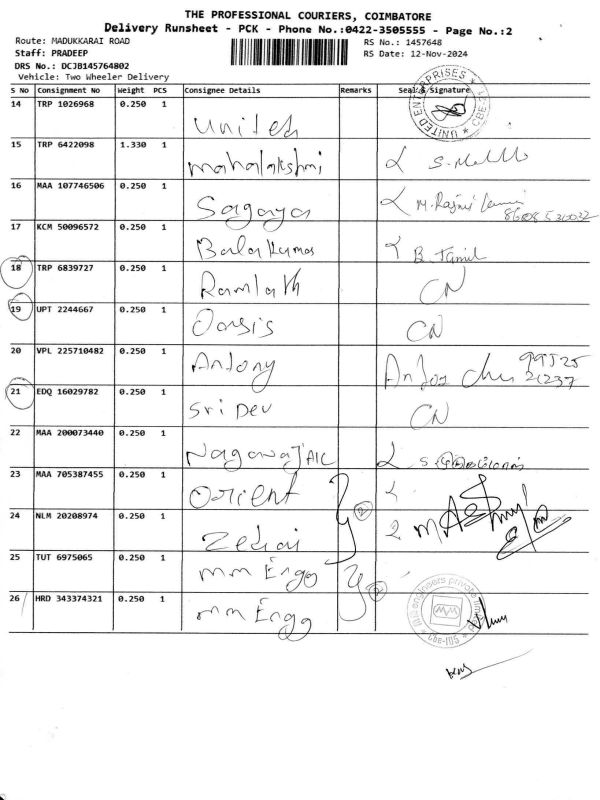 THE PROFESSIONAL COURIERS, COIMBATORE
Delivery Runsheet - PCK - Phone No.:0422-3505555 - Page No.:2
Route: MADUKKARAI ROAD RS No.: 1457648
Staff: PRADEEP RS Date: 12-Nov-2024
DRS No.: DCJB145764802
Vehicle: Two Wheeler Delivery
S No Consignment No Weight PCS Consignee Details Remarks Seal & Signature
14 TRP 1026968 0.250 1 United UNITED ENTERPRISES CBE
15 TRP 6422098 1.330 1 mahalakshmi
16 MAA 107746506 0.250 1 Sagaya
17 KCM 50096572 0.250 1 Balakumar B. Tamil
18 TRP 6839727 0.250 1 Ramlath CN
19 UPT 2244667 0.250 1 Oasis CN
20 VPL 225710482 0.250 1 Antony
21 EDQ 16029782 0.250 1 Sri Dev CN
22 MAA 200073440 0.250 1
23 MAA 705387455 0.250 1 Orient
24 NLM 20208974 0.250 1 2
25 TUT 6975065 0.250 1 mm Engg 2
26 HRD 343374321 0.250 1 mm Engg MM engineers private limited MM Cbe-105